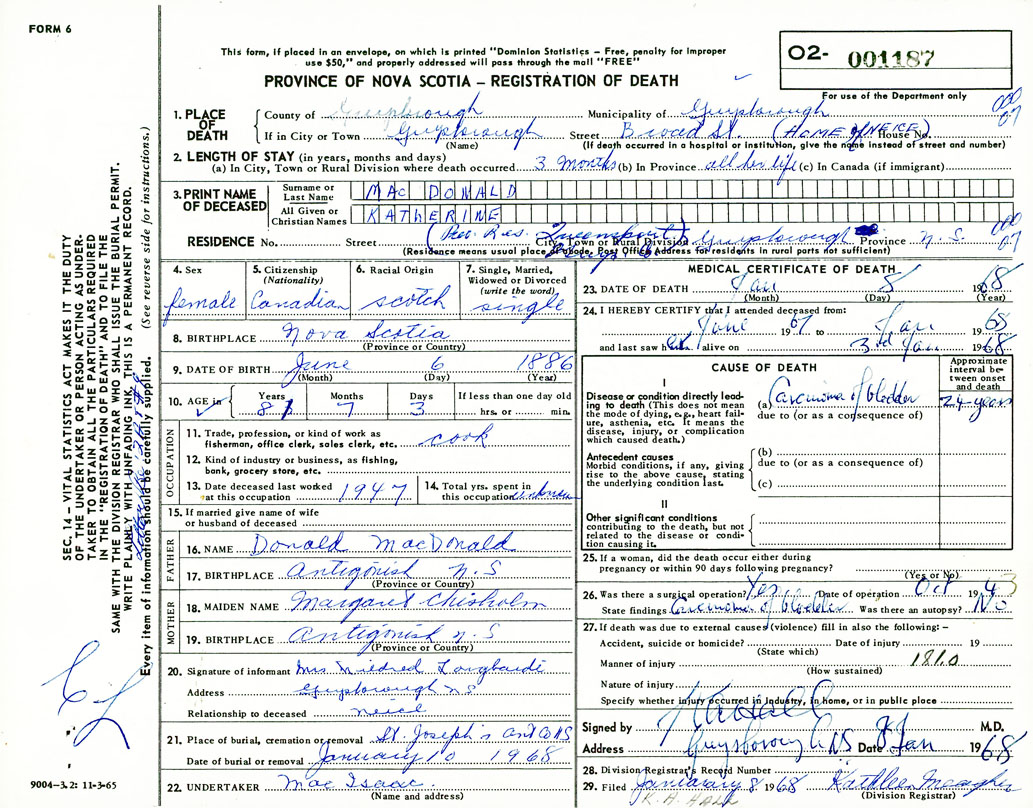 FORM 6
This form, if placed in an envelope, on which is printed "Dominion Statistics – Free, penalty for improper
use $50," and properly addressed will pass through the mail "FREE"
PROVINCE OF NOVA SCOTIA – REGISTRATION OF DEATH
O2- 001187
For use of the Department only
1. PLACE OF DEATH
County of Guysborough Municipality of Guysborough
If in City or Town Guysborough Street Broad St. (HOME of NEICE) House No.
(Name) (If death occurred in a hospital or institution, give the name instead of street and number)
000
07
2. LENGTH OF STAY (in years, months and days)
(a) In City, Town or Rural Division where death occurred 3 Months (b) In Province all her life (c) In Canada (if immigrant)
3. PRINT NAME OF DECEASED
Surname or Last Name MAC DONALD
All Given or Christian Names KATHERINE
(Prev. Res.
RESIDENCE No. Street City, Town or Rural Division Guysborough Province N.S.
(Residence means usual place of abode. Post Office Address for residents in rural parts not sufficient)
000
07
4. Sex
female
5. Citizenship (Nationality)
Canadian
6. Racial Origin
scotch
7. Single, Married, Widowed or Divorced (write the word)
single
8. BIRTHPLACE Nova Scotia
(Province or Country)
9. DATE OF BIRTH June 6 1886
(Month) (Day) (Year)
10. AGE in Years Months Days If less than one day old
81 7 3 hrs. or min.
OCCUPATION
11. Trade, profession, or kind of work as fisherman, office clerk, sales clerk, etc. cook
12. Kind of industry or business, as fishing, bank, grocery store, etc.
13. Date deceased last worked at this occupation 1947
14. Total yrs. spent in this occupation unknown
15. If married give name of wife or husband of deceased
FATHER
16. NAME Donald MacDonald
17. BIRTHPLACE Antigonish N.S
(Province or Country)
MOTHER
18. MAIDEN NAME Margaret Chisholm
19. BIRTHPLACE Antigonish N.S
(Province or Country)
20. Signature of informant Mrs. Mildred
Address Guysborough NS
Relationship to deceased neice
21. Place of burial, cremation or removal St. Joseph's Ant Co NS
Date of burial or removal January 10 1968
22. UNDERTAKER Mac Isaac
(Name and address)
MEDICAL CERTIFICATE OF DEATH
23. DATE OF DEATH Jan 8 1968
(Month) (Day) (Year)
24. I HEREBY CERTIFY that I attended deceased from:
June 1967 to Jan 1968
and last saw her alive on 3rd Jan 1968
CAUSE OF DEATH
Approximate interval between onset and death
I
Disease or condition directly leading to death (This does not mean the mode of dying, e.g., heart failure, asthenia, etc. It means the disease, injury, or complication which caused death.)
(a) Carcinoma of bladder 24 years
due to (or as a consequence of)
Antecedent causes
Morbid conditions, if any, giving rise to the above cause, stating the underlying condition last.
(b)
due to (or as a consequence of)
(c)
II
Other significant conditions contributing to the death, but not related to the disease or condition causing it.
25. If a woman, did the death occur either during pregnancy or within 90 days following pregnancy?
(Yes or No)
26. Was there a surgical operation? Yes Date of operation Oct 1943
State findings Carcinoma of bladder Was there an autopsy? No
27. If death was due to external causes (violence) fill in also the following:–
Accident, suicide or homicide? Date of injury 19
(State which)
Manner of injury 181.0
(How sustained)
Nature of injury
Specify whether injury occurred in industry, in home, or in public place
Signed by M.D.
Address Guysborough NS Date 8 Jan 1968
28. Division Registrar's Record Number
29. Filed January 8 1968 Kathleen Meagher
(Division Registrar)
SEC. 14 – VITAL STATISTICS ACT MAKES IT THE DUTY
OF THE UNDERTAKER OR PERSON ACTING AS UNDER-
TAKER TO OBTAIN ALL THE PARTICULARS REQUIRED
IN THE "REGISTRATION OF DEATH" AND TO FILE THE
SAME WITH THE DIVISION REGISTRAR WHO SHALL ISSUE THE BURIAL PERMIT.
WRITE PLAINLY WITH UNFADING INK, THIS IS A PERMANENT RECORD.
Every item of information should be carefully supplied. (See reverse side for instructions.)
9004-3.2: 11-3-65